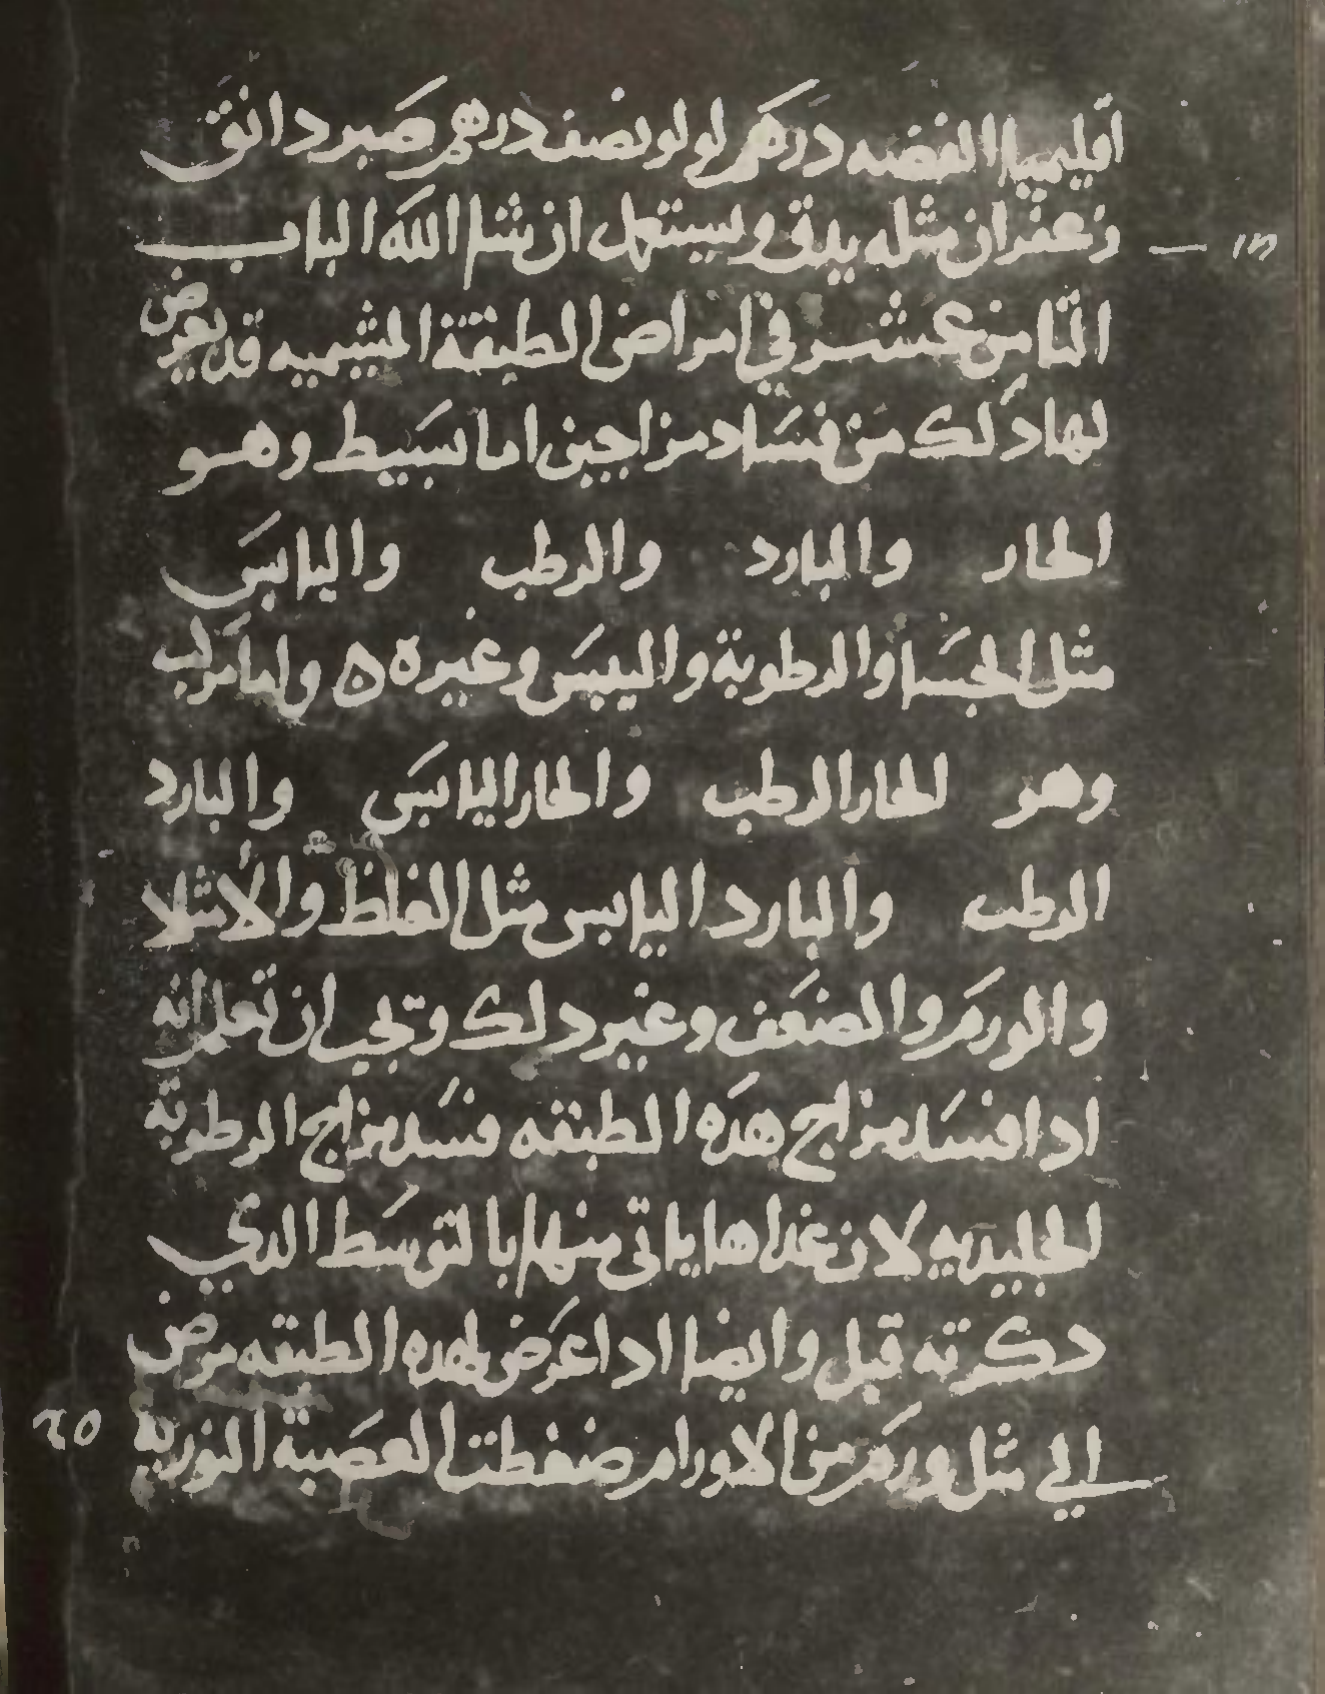 اقليميا الفضه درهم لولو نصف درهم صبر دانق
زعفران مثله يدق ويستعمل ان شا الله الباب
الثامن عشر في امراض الطبقة المشيميه قد يعرض
لها دلك من فساد مزاجين اما بسيط وهو
الحار والبارد والرطب واليابس
مثل الجسا والرطوبة واليبس وغيره ه واما مركب
وهو الحار الرطب والحار اليابس والبارد
الرطب والبارد اليابس مثل الغلظ والامتلا
والورم والضعف وغير دلك ويجب ان تعلم انه
ادا فسد مزاج هده الطبقه فسد مزاج الرطوبة
الجليديه لان غداها ياتي منها بالتوسط الدي
دكرته قبل وايضا ادا عرض لهده الطبقه مرض
الي مثل ورم من الاورام ضغطت العصبة النورية
٢٥